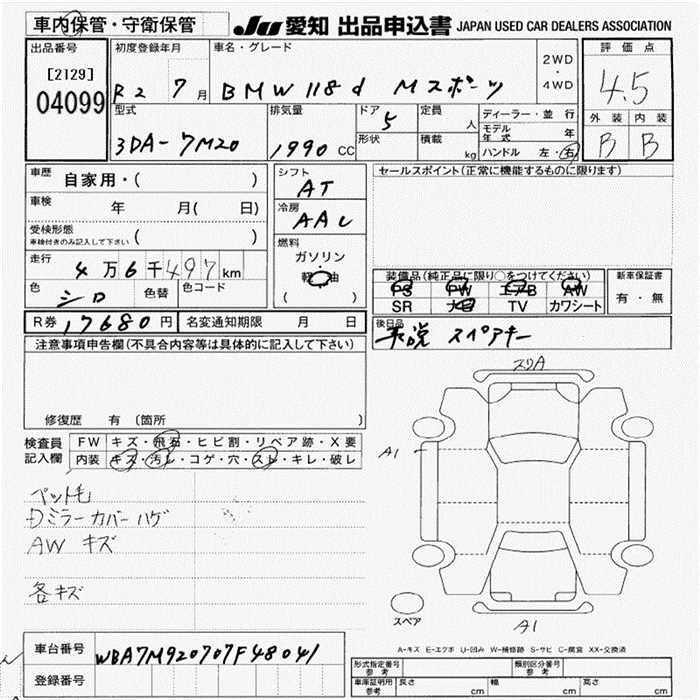 車内保管・守衛保管
JU 愛知 出品申込書 JAPAN USED CAR DEALERS ASSOCIATION
出品番号
[2129]
04099
初度登録年月
R2 7月
車名・グレード
BMW 118d Mスポーツ
2WD
・
4WD
評価点
4.5
外装 内装
B B
型式
3DA-7M20
排気量
1990 CC
ドア
5
形状
定員
人
積載
kg
ディーラー・並行
モデル年式 年
ハンドル 左・右
車歴 自家用・( )
車検 年 月( 日)
受検形態
車検付きのみ記入して下さい ( )
走行 4万6千497km
色 シロ 色替 色コード
シフト
AT
冷房
AAC
燃料
ガソリン
軽油
( )
セールスポイント(正常に機能するものに限ります)
装備品(純正品に限り○をつけてください)
PS PW エアB AW
SR ナビ TV カワシート
新車保証書
有・無
R券 17680円 名変通知期限 月 日
後日品
取説 スペアキー
注意事項申告欄(不具合内容等は具体的に記入して下さい)
修復歴 有 (箇所 )
検査員
記入欄
FW キズ・飛石・ヒビ割・リペア跡・X要
内装 キズ・汚レ・コゲ・穴・スレ・キレ・破レ
ペット毛
Dミラーカバーハゲ
AW キズ
各キズ
スリA
A1
スペア
A1
A-キズ E-エクボ U-凹み W-補修跡 S-サビ C-腐食 XX-交換済
車台番号 WBA7M920707F48041
登録番号
形式指定番号
参考
類別区分番号
参考
車庫証明用
参考
長さ cm 幅 cm 高さ cm